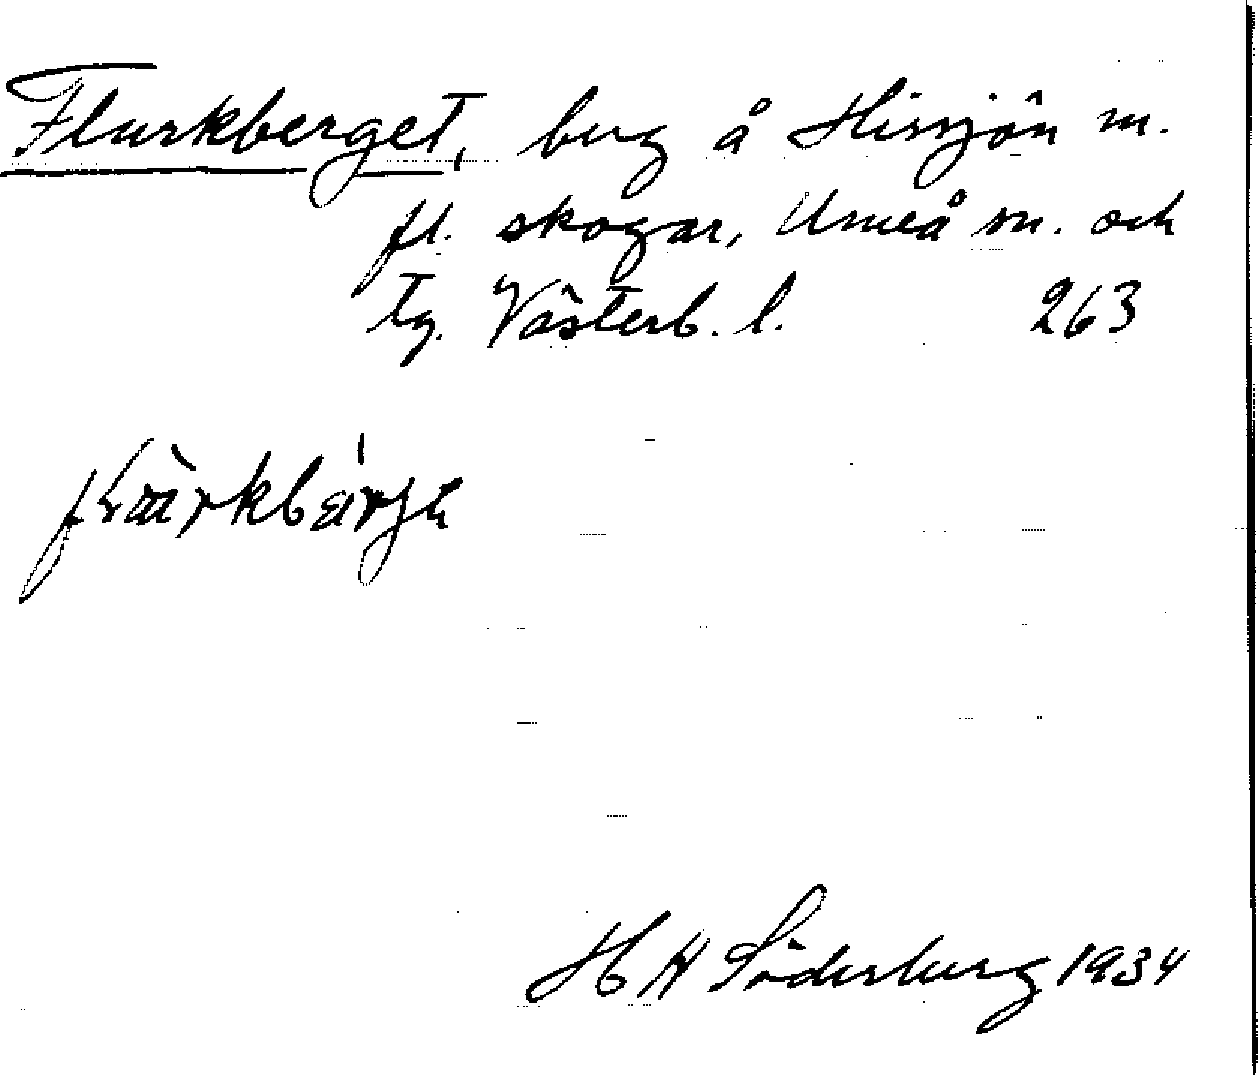 Flurkberget, berg å Hissjön m.
fl. skogar, Umeå sn. och
tg. Västerb. l. 263
H H Söderberg 1934